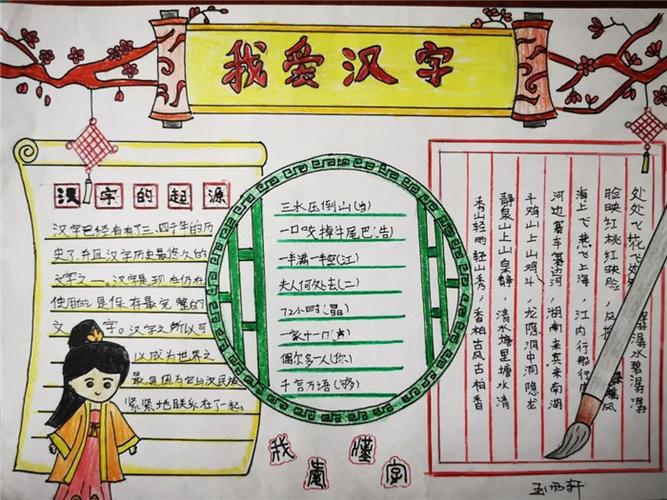 我爱汉字
汉字的起源
汉字已经有有了三、四千年的历
史了,并且汉字历史最悠久的
文字之一。汉字是现在仍在
使用的是保存最完整的
文字。汉字之所以可
以成为世界之
最是因为它与汉民族
紧紧地联系在了一起。
三水压倒山(当)
一口咬掉牛尾巴(告)
一半满一半空(江)
夫人何处去(二)
72小时(晶)
一家十一口(吉)
偶尔多人(你)
千言万语(够)
处处飞花飞处 潺潺水碧潺潺
脸映红桃红映脸,风 风
海上飞燕飞上海,江内行船行
河边赛车赛边河,湖南来宾来南湖
斗鸡山上山鸡斗,龙隐洞中洞隐龙
静泉山上山泉静,清水塘里塘水清
秀山轻雨轻山秀,香柏古风古柏香
我 懂
字